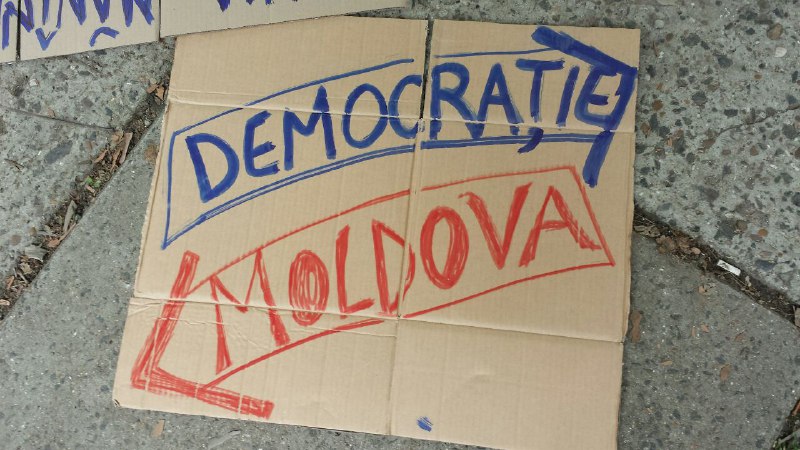 DEMOCRAȚIE
MOLDOVA